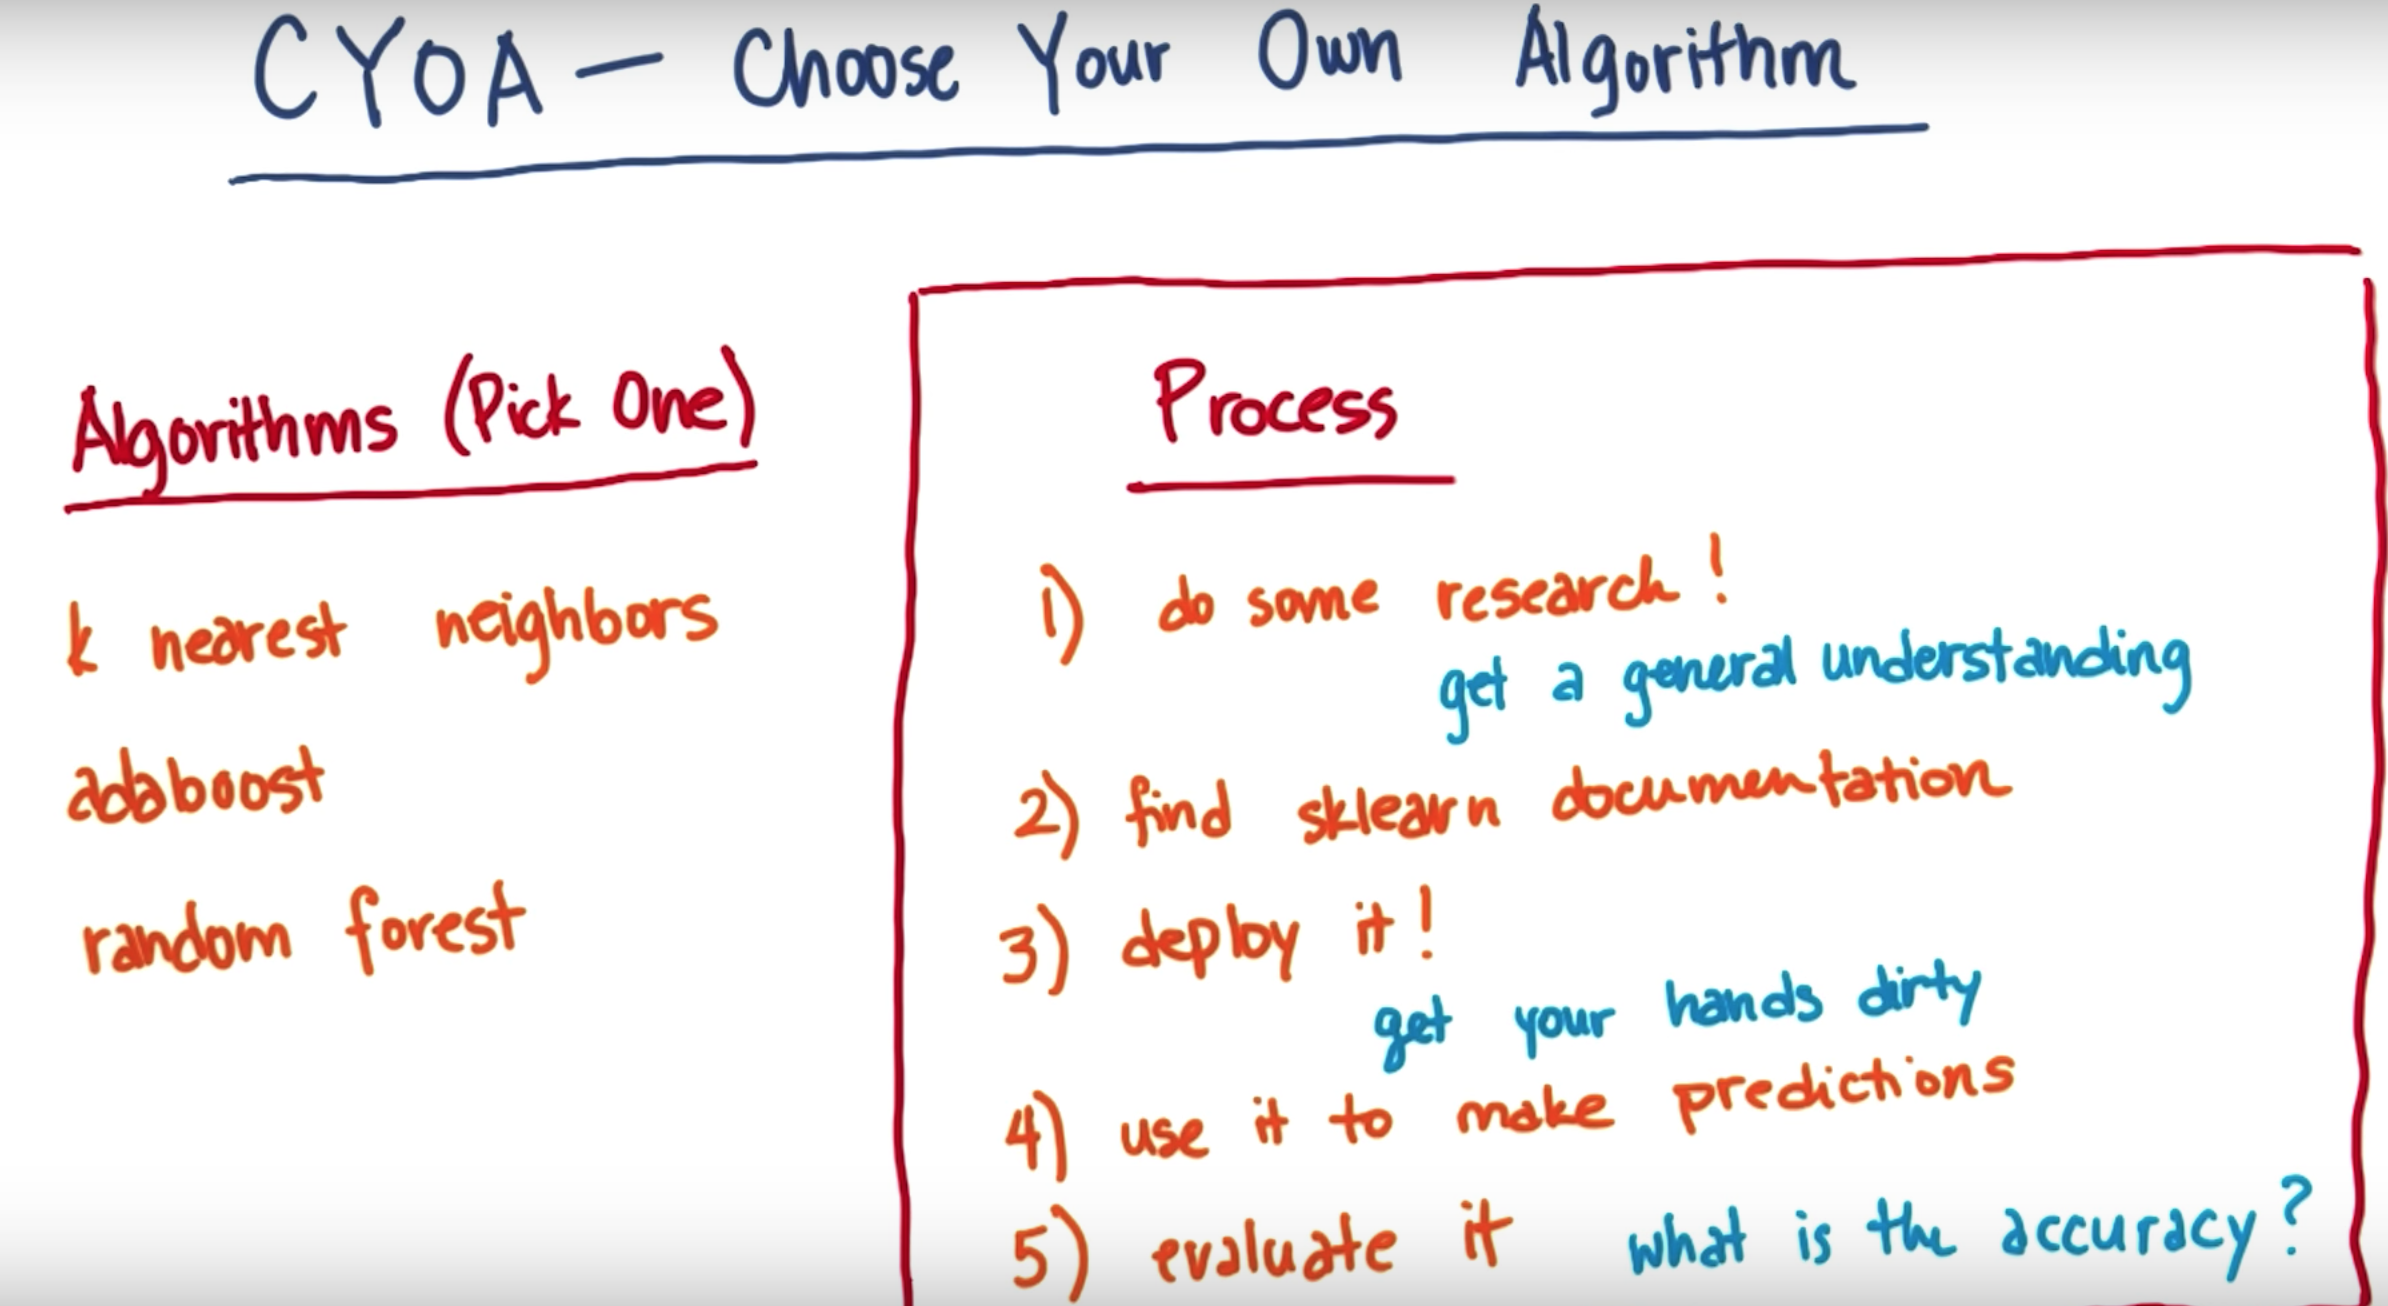 CYOA — Choose Your Own Algorithm
Algorithms (Pick One)
k nearest neighbors
adaboost
random forest
Process
1) do some research!
get a general understanding
2) find sklearn documentation
3) deploy it!
get your hands dirty
4) use it to make predictions
5) evaluate it what is the accuracy?